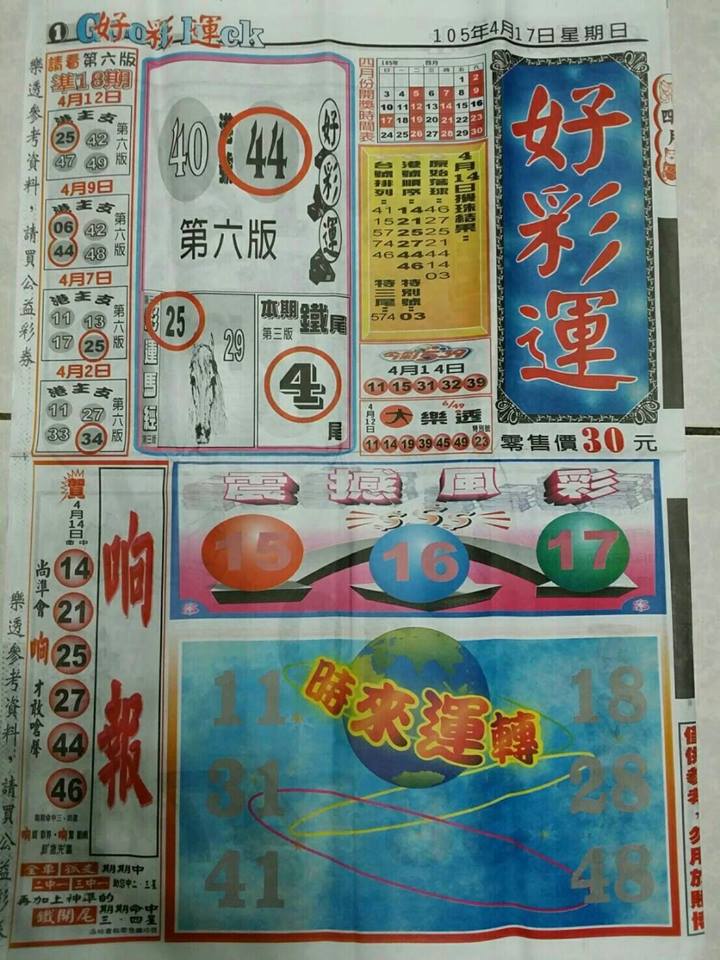 1 Good Luck
好彩運
105年4月17日星期日
樂透參考資料，請買公益彩券
請看第六版
準18期
4月12日
港主支
25 42
47 49
第六版
4月9日
港主支
06 42
44 48
第六版
4月7日
港主支
11 13
17 25
第六版
4月2日
港主支
11 27
33 34
第六版
40 港號 44
好彩運
第六版
25
29
本期鐵尾
第三版
4尾
四月份開獎時間表
105年 四月
日 一 二 三 四 五 六
1 2
3 4 5 6 7 8 9
10 11 12 13 14 15 16
17 18 19 20 21 22 23
24 25 26 27 28 29 30
4月14日攪珠結果：
原始落球：
46
27
25
21
44
14
03
港號順序：
14
21
25
27
44
46
特別號
03
台號排列：
41
15
57
74
46
特三尾
574
今彩539
4月14日
11 15 31 32 39
4月12日
大樂透
6/49
特別號
11 14 19 39 45 49 23
好彩運
零售價30元
賀
4月14日
14
21
25
27
44
46
尚準會响才敢嗆聲
响報
全車 孤支 期期中
二中一 三中一
再加上神準的
鐵開尾
期期命中
三．四星
震撼風彩
15 16 17
時來運轉
11 18
31 28
41 48
樂透參考資料，請買公益彩券